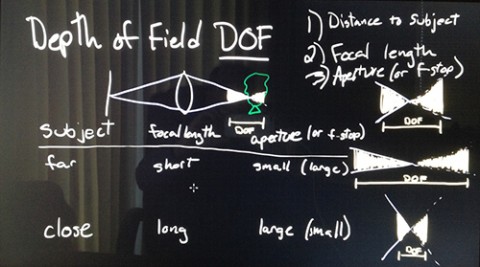 Depth of Field DOF
1) Distance to Subject
2) Focal length
3) Aperture (or f-stop)
DOF
DOF
subject focal length aperture (or f-stop)
far short small (large)
DOF
close long large (small)
DOF